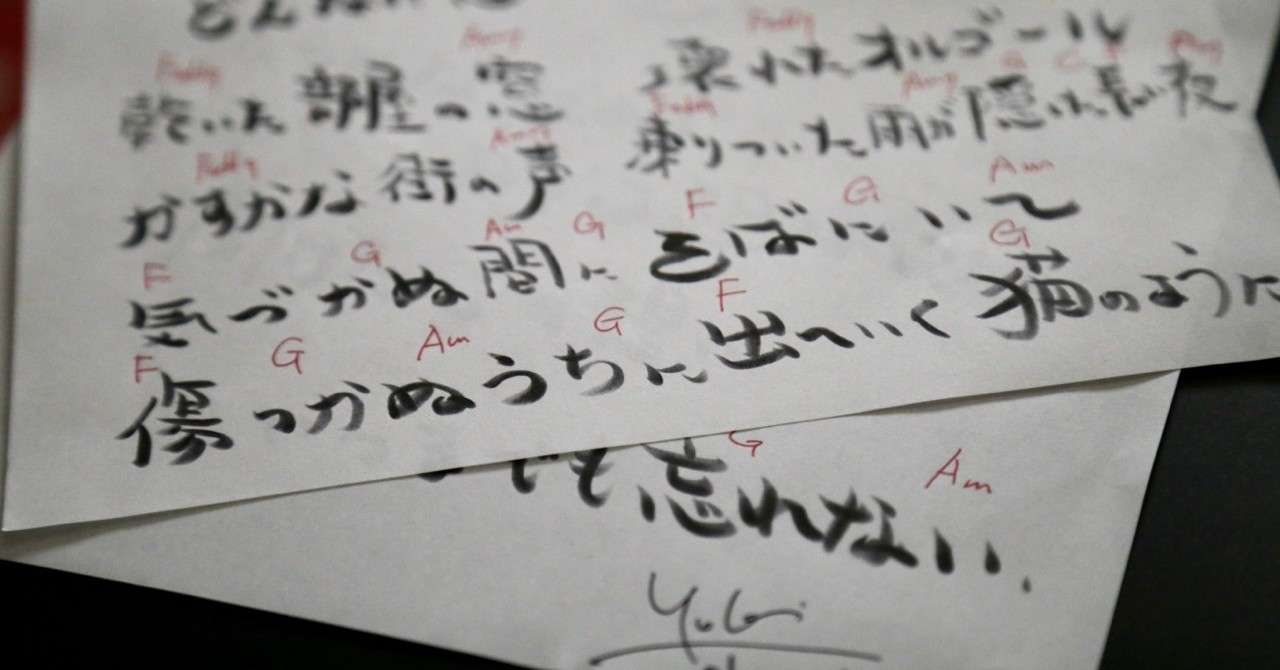 Fadd9
乾いた部屋の窓 壊れたオルゴール
Fadd9
かすかな街の声 凍りついた雨が隠した長い夜
F G Am G F G Am
気づかぬ間に そばにいて
F G Am G F G
傷つかぬうちに出ていく 猫のように
G Am
でも忘れない.